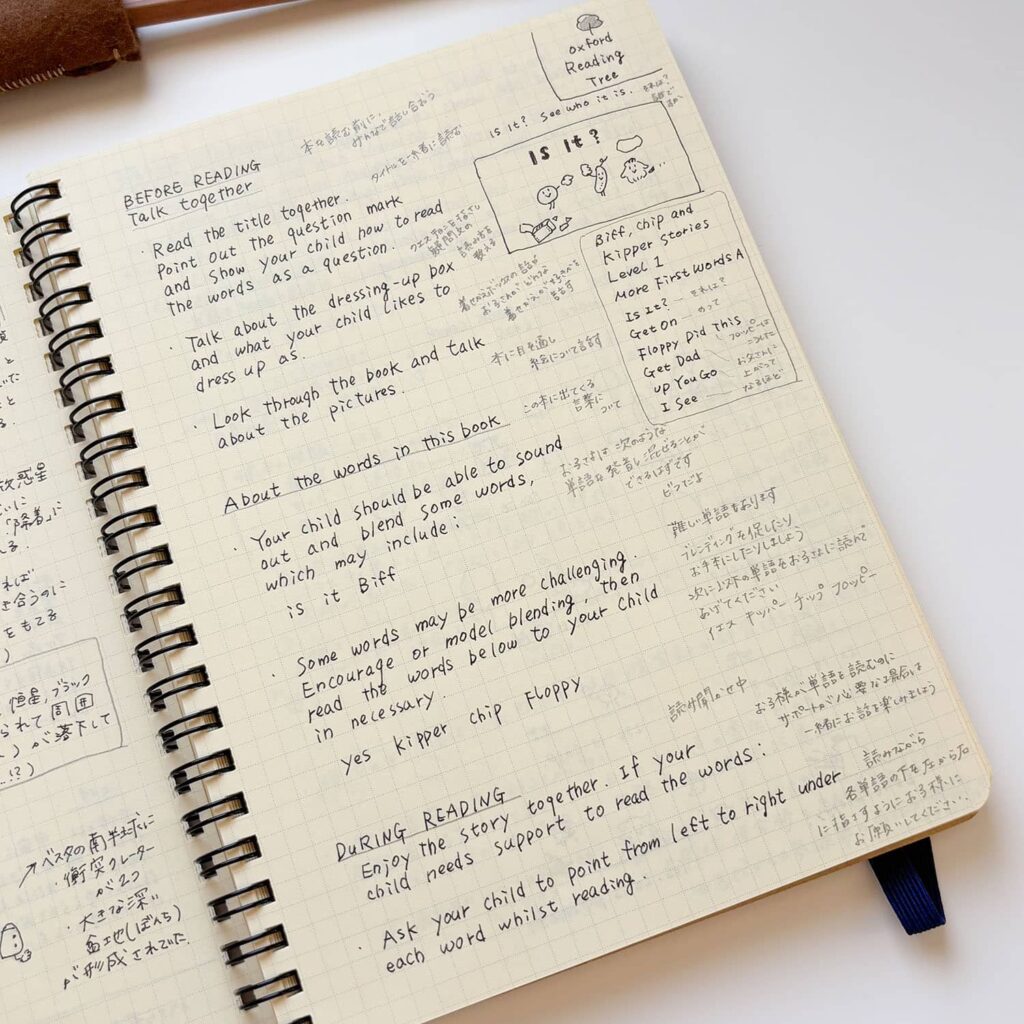 Oxford
Reading
Tree
Is It? See who it is.
Is It?
Biff, Chip and
Kipper Stories
Level 1
More First Words A
Is It? それは?
Get On のって
Floppy Did This フロッピーは
こうした
Get Dad お父さんに
Up You Go 上がって
I See なるほど
本を読む前に、
みんなで話し合おう
BEFORE READING
Talk together
タイトルを一緒に読む
・Read the title together.
Point out the question mark
and show your child how to read
the words as a question.
クエスチョン
疑問文の
読み方を
教える
・Talk about the dressing-up box
and what your child likes to
dress up as.
着せかえボックスの話や
お子さんが どんな
着せかえが するきべを
話す
・Look through the book and talk
about the pictures.
本に目を通し
絵について話す
About the words in this book
この本に出てくる
言葉に
ついて
・Your child should be able to sound
out and blend some words,
which may include:
is it Biff
お子さまは 次のような
単語を発音し混ぜることが
できるはずです
ビフだよ
・Some words may be more challenging.
Encourage or model blending, then
read the words below to your child
in necessary.
yes Kipper chip Floppy
難しい単語もあります
ブレンディングを促したり
お手本にしたりしましよう
次に以下の単語をお子さまに読んで
あげてください
イエス キッパー チップ フロッピー
DURING READING
読み聞かせ中
Enjoy the story together. If your
child needs support to read the words:
お子様が単語を読むのに
サポートが必要な場合は
一緒にお話を楽しみましょう
・Ask your child to point from left to right under
each word whilst reading.
読みながら
各単語の下を左から右
に指さすようにお子様に
お願いしてください.
と
いた
と
る.
惑星
いに
「降着」に
る.
れば
き合うのに
をもてる
)
恒星,ブラック
られて周囲
)が落下して
!?)
ベスタの南半球に
・衝突クレーター
が2つ
・大きな深い
盆地(ぼんち)
が形成されていた.